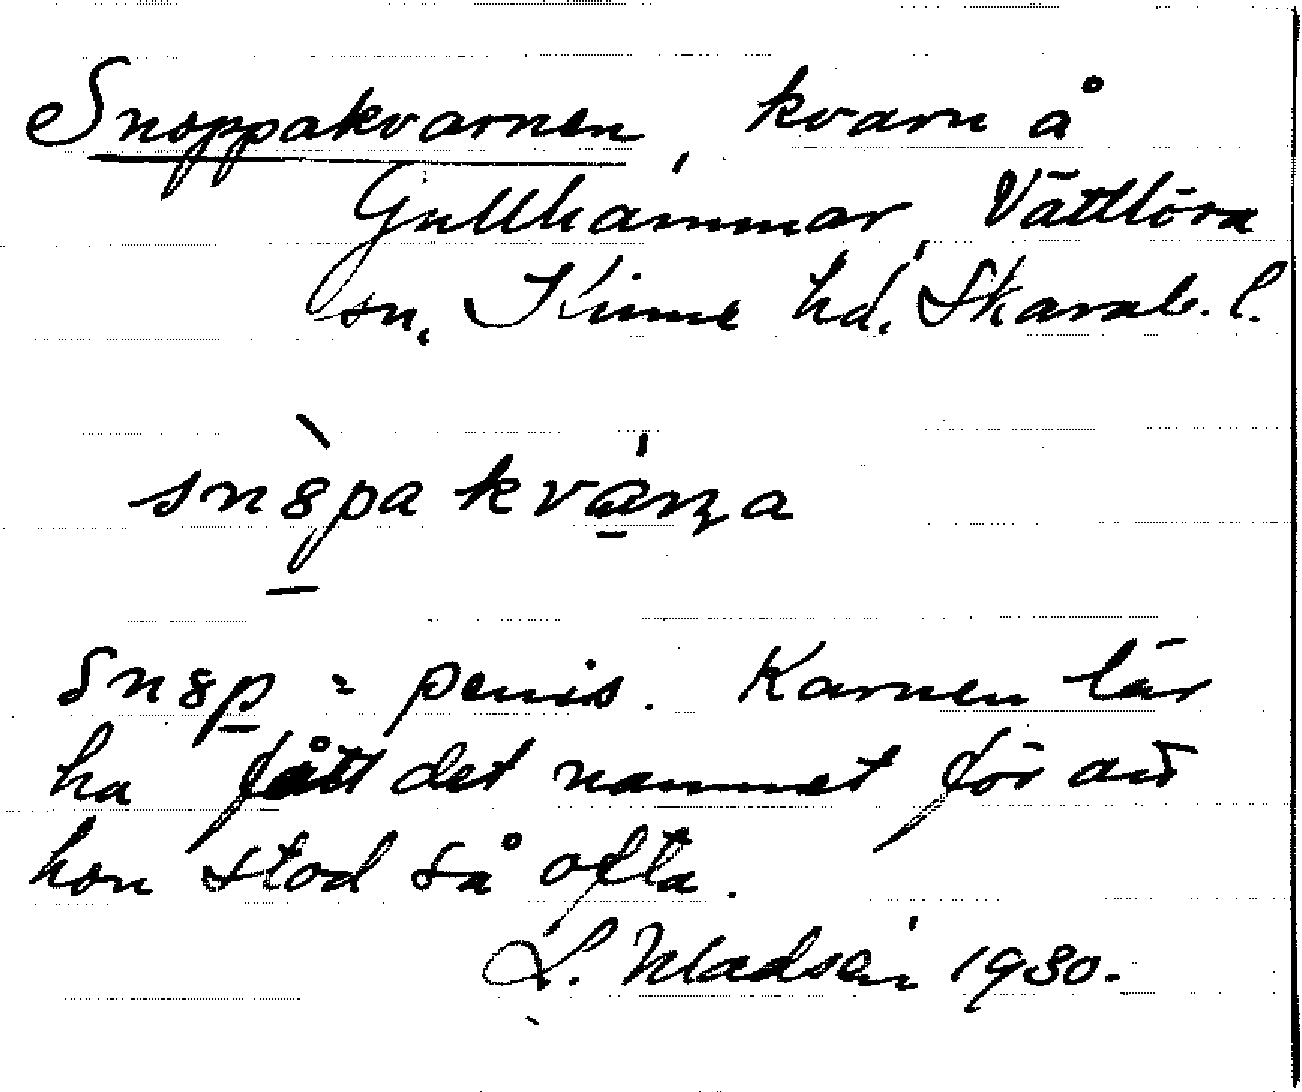 Snoppakvarnen kvarn å
Gullhammar, Vättlösa
sn, Kinne hd, Skarab. l.
sn8̀pa kváṉa
Sn8p = penis. Karnen lär
ha fått det namnet för att
hon stod så ofta.
1930.